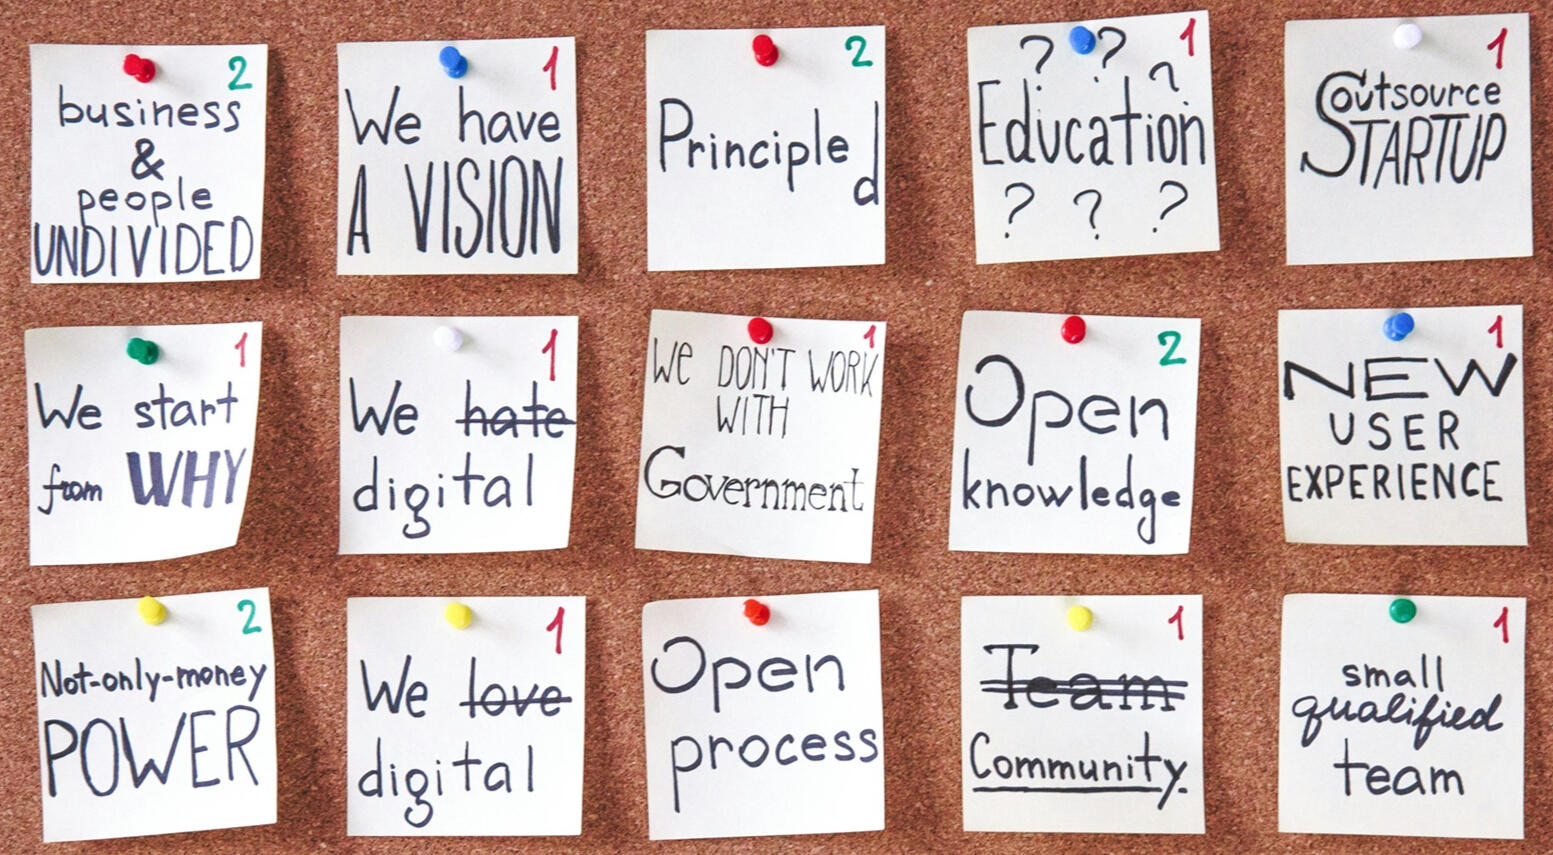 2
business
&
people
UNDIVIDED
1
We have
A VISION
2
Principle
d
1
? ? ?
Education
? ? ?
1
Outsource
STARTUP
1
We start
from WHY
1
We hate
digital
1
WE DON'T WORK
WITH
Government
2
Open
knowledge
1
NEW
USER
EXPERIENCE
2
Not-only-money
POWER
1
We love
digital
Open
process
1
Team
Community.
1
small
qualified
team